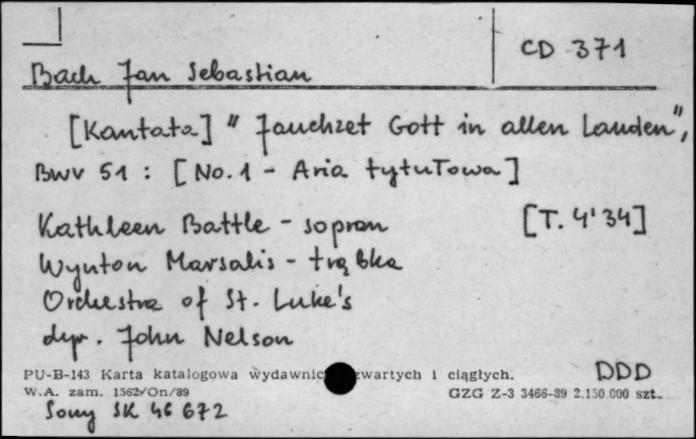 CD 371
Bach Jan Sebastian
[Kantata] " Jauchzet Gott in allen Landen",
BWV 51 : [No. 1 - Aria tytułowa]
Kathleen Battle - sopran [T. 4'34]
Wynton Marsalis - trąbka
Orchestra of St. Luke's
dyr. John Nelson
PU-B-143 Karta katalogowa wydawnic zwartych i ciągłych. DDD
W.A. zam. 1562/On/89 GZG Z-3 3466-89 2.150.000 szt.
Sony SK 46 672